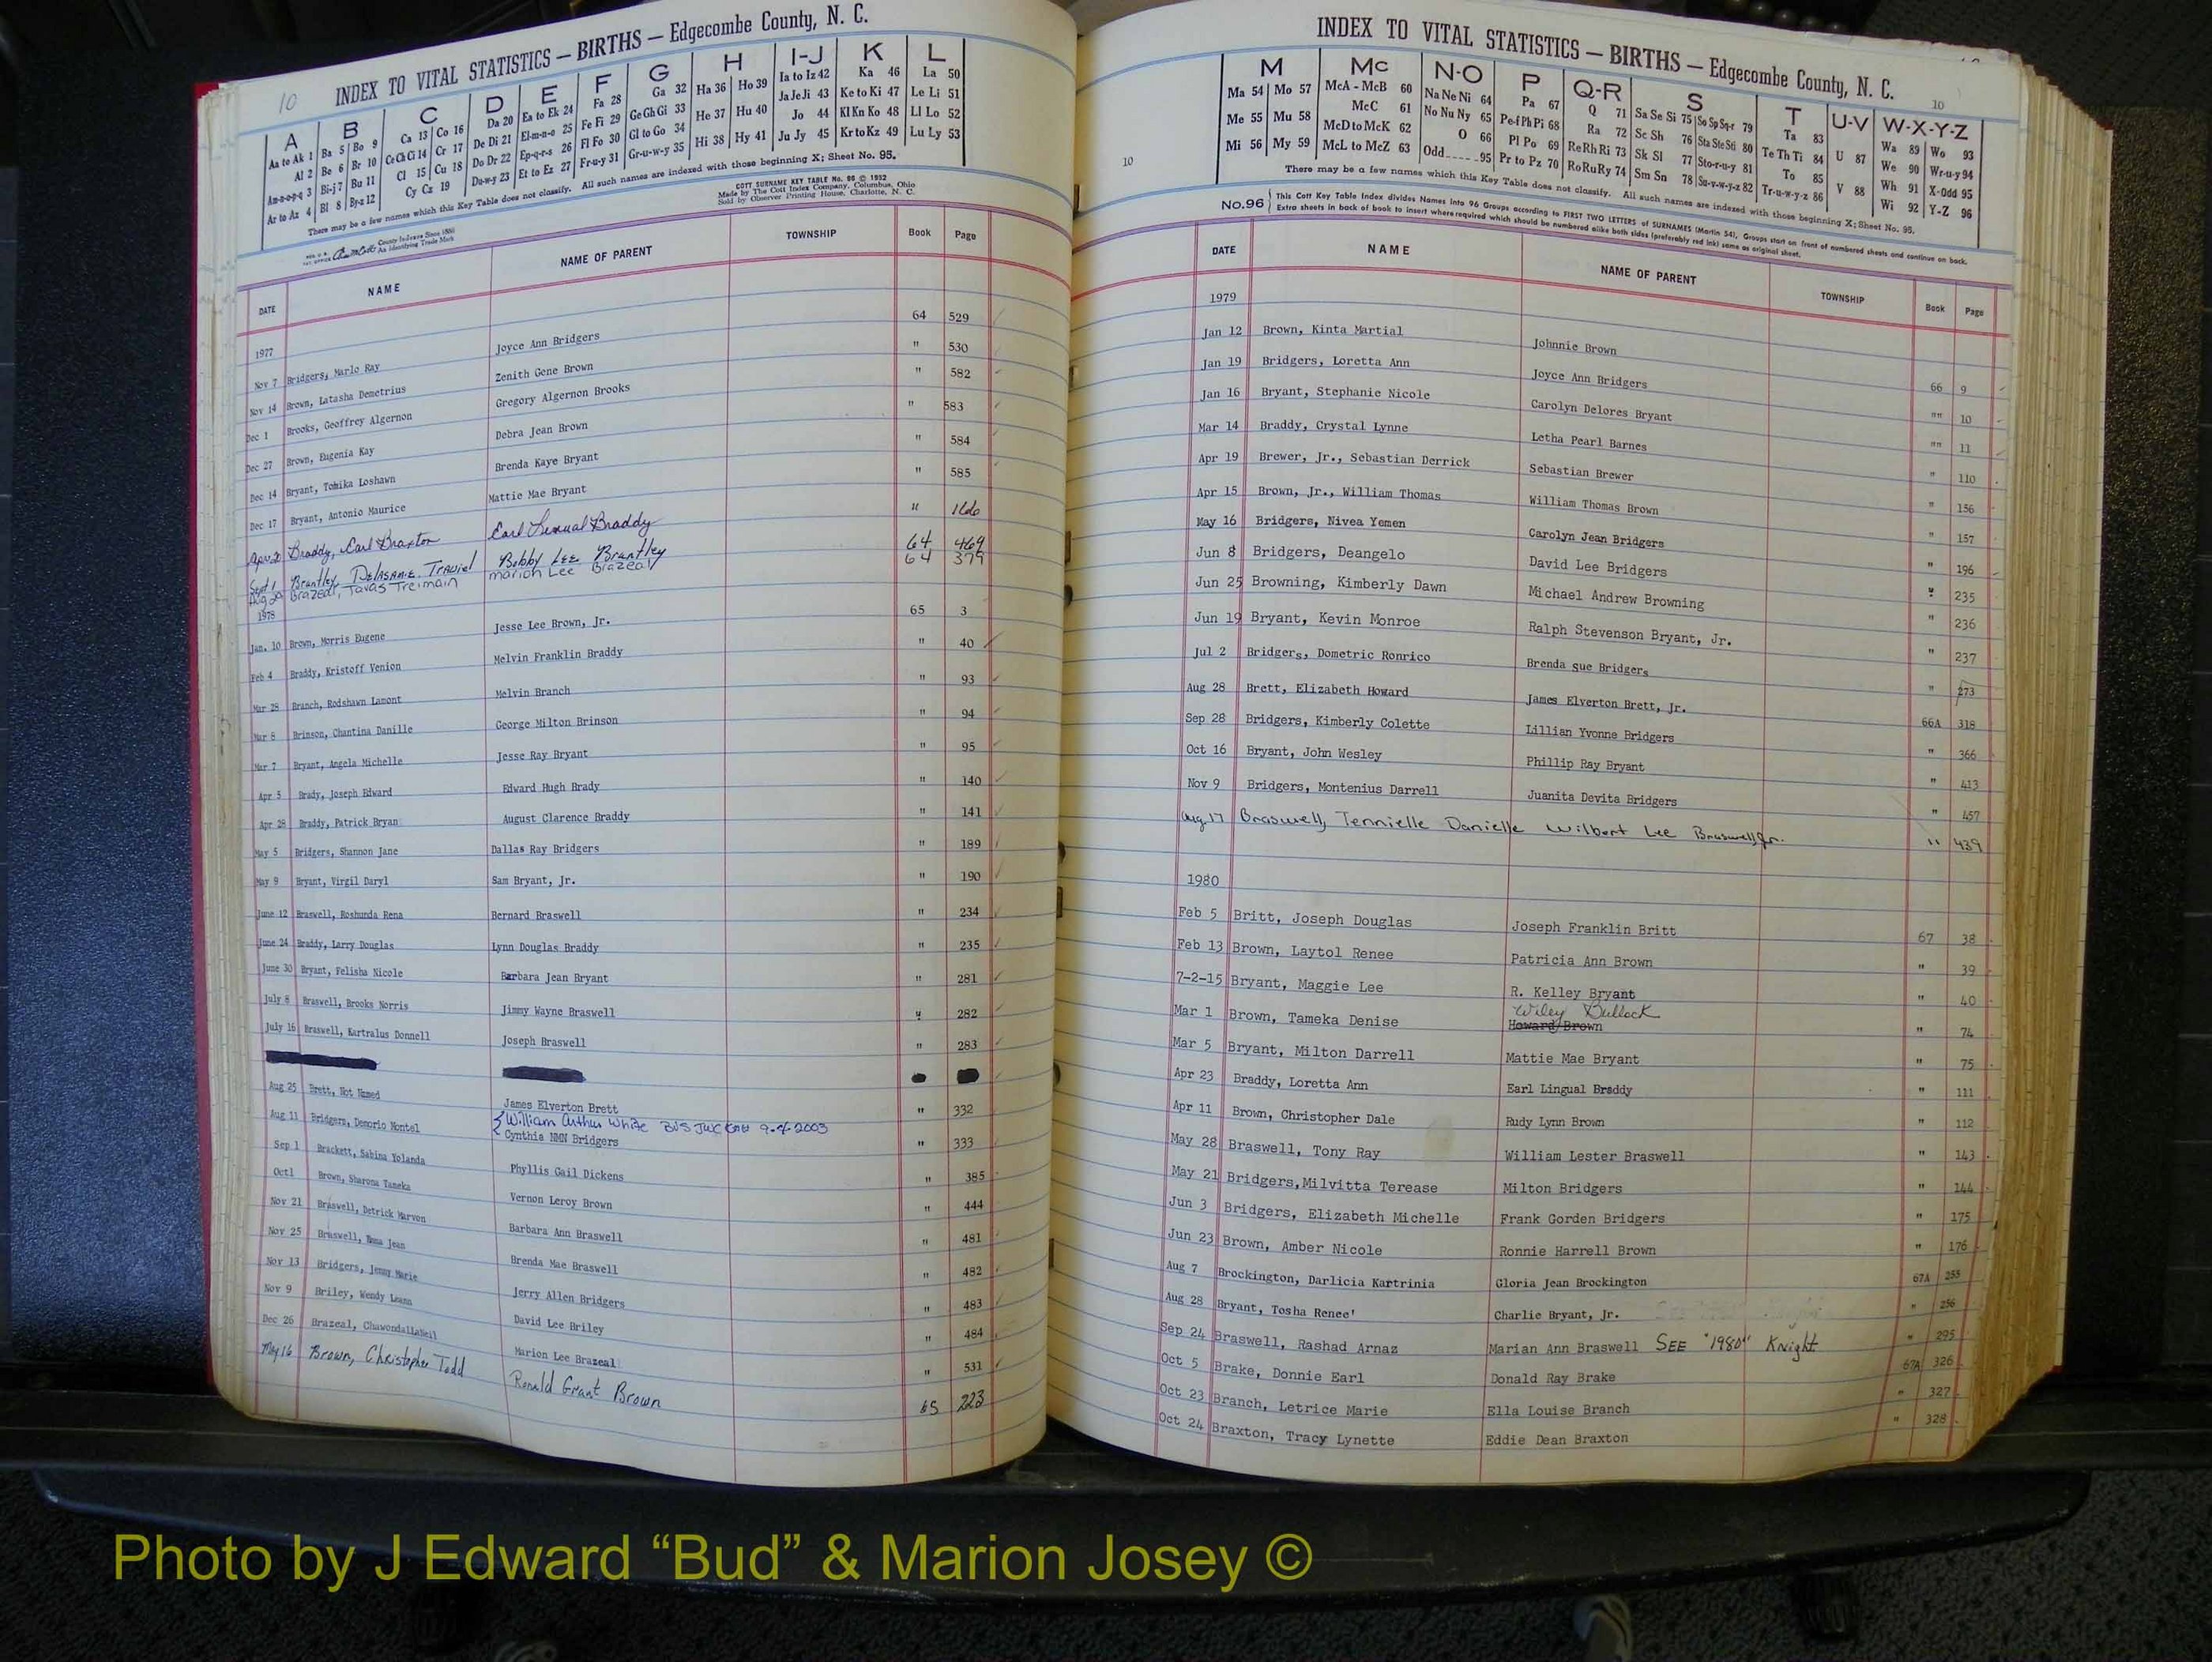 10
INDEX TO VITAL STATISTICS — BIRTHS — Edgecombe County, N. C.
A B C D E F G H I-J K L
Aa to Ak 1 Ba 5 Bo 9 Ca 13 Co 16 Da 20 Ea to Ek 24 Fa 28 Ga 32 Ha 36 Ho 39 Ia to Iz 42 Ka 46 La 50
Al 2 Be 6 Br 10 Ce Ch Ci 14 Cr 17 De Di 21 El-m-n-o 25 Fe Fi 29 Ge Gh Gi 33 He 37 Hu 40 Ja Je Ji 43 Ke to Ki 47 Le Li 51
Am-n-o-p-q 3 Bi-j 7 Bu 11 Cl 15 Cu 18 Do Dr 22 Ep-q-r-s 26 Fl Fo 30 Gl to Go 34 Hi 38 Hy 41 Jo 44 Kl Kn Ko 48 Ll Lo 52
Ar to Az 4 Bl 8 By-z 12 Cy Cz 19 Du-w-y 23 Et to Ez 27 Fr-u-y 31 Gr-u-w-y 35 Ju Jy 45 Kr to Kz 49 Lu Ly 53
There may be a few names which this Key Table does not classify. All such names are indexed with those beginning X; Sheet No. 95.
COTT SURNAME KEY TABLE No. 96 © 1952
Made by The Cott Index Company, Columbus, Ohio
Sold by Observer Printing House, Charlotte, N. C.
County Indexes Since 1888
An Identifying Trade Mark
DATE NAME NAME OF PARENT TOWNSHIP Book Page
1977
Nov 7 Bridgers, Marlo Ray Joyce Ann Bridgers 64 529
Nov 14 Brown, Latasha Demetrius Zenith Gene Brown " 530
Dec 1 Brooks, Geoffrey Algernon Gregory Algernon Brooks " 582
Dec 27 Brown, Eugenia Kay Debra Jean Brown " 583
Dec 14 Bryant, Tomika Loshawn Brenda Kaye Bryant " 584
Dec 17 Bryant, Antonio Maurice Mattie Mae Bryant " 585
Braddy, Earl Braxton Earl Braddy " 166
Sept 1 Brantley, Bobby Lee Brantley 64 469
Aug 20 Brazeal, Tavas Treimain Marion Lee Brazeal 64 379
1978
Jan. 10 Brown, Morris Eugene Jesse Lee Brown, Jr. 65 3
Feb 4 Braddy, Kristoff Venion Melvin Franklin Braddy " 40
Mar 28 Branch, Rodshawn Lamont Melvin Branch " 93
Mar 8 Brinson, Chantina Danille George Milton Brinson " 94
Mar 7 Bryant, Angela Michelle Jesse Ray Bryant " 95
Apr 5 Brady, Joseph Edward Edward Hugh Brady " 140
Apr 28 Braddy, Patrick Bryan August Clarence Braddy " 141
May 5 Bridgers, Shannon Jane Dallas Ray Bridgers " 189
May 9 Bryant, Virgil Daryl Sam Bryant, Jr. " 190
June 12 Braswell, Roshunda Rena Bernard Braswell " 234
June 24 Braddy, Larry Douglas Lynn Douglas Braddy " 235
June 30 Bryant, Felisha Nicole Barbara Jean Bryant " 281
July 8 Braswell, Brooks Norris Jimmy Wayne Braswell " 282
July 16 Braswell, Kartralus Donnell Joseph Braswell " 283
Aug 25 Brett, Not Named James Elverton Brett " 332
William Arthur White BVS JWC 9-4-2003
Aug 11 Bridgers, Demorio Montel Cynthia NMN Bridgers " 333
Sep 1 Brackett, Sabina Yolanda Phyllis Gail Dickens " 385
Oct1 Brown, Sharona Tameka Vernon Leroy Brown " 444
Nov 21 Braswell, Detrick Marvon Barbara Ann Braswell " 481
Nov 25 Braswell, Emma Jean Brenda Mae Braswell " 482
Nov 13 Bridgers, Jenny Marie Jerry Allen Bridgers " 483
Nov 9 Briley, Wendy Leann David Lee Briley " 484
Dec 26 Brazeal, Marion Lee Brazeal " 531
May 16 Brown, Christopher Todd Ronald Grant Brown 65 223
INDEX TO VITAL STATISTICS — BIRTHS — Edgecombe County, N. C.
10
10
M Mc N-O P Q-R S T U-V W-X-Y-Z
Ma 54 Mo 57 McA - McB 60 Na Ne Ni 64 Pa 67 Q 71 Sa Se Si 75 So Sp Sq-r 79 Ta 83 Wa 89 Wo 93
Me 55 Mu 58 McC 61 No Nu Ny 65 Pe-f Ph Pi 68 Ra 72 Sc Sh 76 Sta Ste Sti 80 Te Th Ti 84 U 87 We 90 Wr-u-y 94
Mi 56 My 59 McD to McK 62 O 66 Pl Po 69 Re Rh Ri 73 Sk Sl 77 Sto-r-u-y 81 To 85 Wh 91 X-Odd 95
McL to McZ 63 Odd 95 Pr to Pz 70 Ro Ru Ry 74 Sm Sn 78 Su-v-w-y-z 82 Tr-u-w-y-z 86 V 88 Wi 92 Y-Z 96
There may be a few names which this Key Table does not classify. All such names are indexed with those beginning X; Sheet No. 95.
No. 96 This Cott Key Table Index divides Names into 96 Groups according to FIRST TWO LETTERS of SURNAMES (Martin 54), Groups start on front of numbered sheets and continue on back.
Extra sheets in back of book to insert where required which should be numbered alike both sides (preferably red ink) same as original sheet.
DATE NAME NAME OF PARENT TOWNSHIP Book Page
1979
Jan 12 Brown, Kinta Martial Johnnie Brown 66 9
Jan 19 Bridgers, Loretta Ann Joyce Ann Bridgers "" 10
Jan 16 Bryant, Stephanie Nicole Carolyn Delores Bryant "" 11
Mar 14 Braddy, Crystal Lynne Letha Pearl Barnes " 110
Apr 19 Brewer, Jr., Sebastian Derrick Sebastian Brewer " 156
Apr 15 Brown, Jr., William Thomas William Thomas Brown " 157
May 16 Bridgers, Nivea Yemen Carolyn Jean Bridgers " 196
Jun 8 Bridgers, Deangelo David Lee Bridgers " 235
Jun 25 Browning, Kimberly Dawn Michael Andrew Browning " 236
Jun 19 Bryant, Kevin Monroe Ralph Stevenson Bryant, Jr. " 237
Jul 2 Bridgers, Dometric Ronrico Brenda Sue Bridgers " 273
Aug 28 Brett, Elizabeth Howard James Elverton Brett, Jr. 66A 318
Sep 28 Bridgers, Kimberly Colette Lillian Yvonne Bridgers " 366
Oct 16 Bryant, John Wesley Phillip Ray Bryant " 413
Nov 9 Bridgers, Montenius Darrell Juanita Devita Bridgers " 457
Aug 17 Braswell, Tennielle Danielle Wilbert Lee Braswell, Jr. " 439
1980
Feb 5 Britt, Joseph Douglas Joseph Franklin Britt 67 38
Feb 13 Brown, Laytol Renee Patricia Ann Brown " 39
7-2-15 Bryant, Maggie Lee R. Kelley Bryant " 40
Wiley Bullock
Mar 1 Brown, Tameka Denise Howard Brown " 74
Mar 5 Bryant, Milton Darrell Mattie Mae Bryant " 75
Apr 23 Braddy, Loretta Ann Earl Lingual Braddy " 111
Apr 11 Brown, Christopher Dale Rudy Lynn Brown " 112
May 28 Braswell, Tony Ray William Lester Braswell " 143
May 21 Bridgers, Milvitta Terease Milton Bridgers " 144
Jun 3 Bridgers, Elizabeth Michelle Frank Gorden Bridgers " 175
Jun 23 Brown, Amber Nicole Ronnie Harrell Brown " 176
Aug 7 Brockington, Darlicia Kartrinia Gloria Jean Brockington 67A 255
Aug 28 Bryant, Tosha Renee' Charlie Bryant, Jr. " 256
Sep 24 Braswell, Rashad Arnaz Marian Ann Braswell SEE "1980" Knight " 295
Oct 5 Brake, Donnie Earl Donald Ray Brake 67A 326
Oct 23 Branch, Letrice Marie Ella Louise Branch " 327
Oct 24 Braxton, Tracy Lynette Eddie Dean Braxton " 328
Photo by J Edward “Bud” & Marion Josey ©